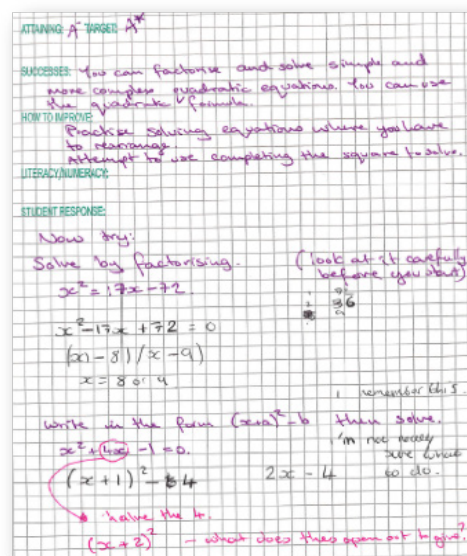 ATTAINING: A⁻ TARGET: A*
SUCCESSES: You can factorise and solve simple and
more complex quadratic equations. You can use
the quadratic formula.
HOW TO IMPROVE:
Practise solving equations where you have
to rearrange.
Attempt to use completing the square to solve.
LITERACY/NUMERACY:
STUDENT RESPONSE:
Now try:
Solve by factorising. (look at it carefully
before you start)
x² = 17x - 72.
36
x² - 17x + 72 = 0
(x - 8)(x - 9)
x = 8 or 9
remember this.
Write in the form (x+a)² - b then solve.
x² + 4x - 1 = 0.
i'm not really
sure what
to do.
(x + 1)² - 4 2x - 4
halve the 4.
(x + 2)² - what does this open out to give?